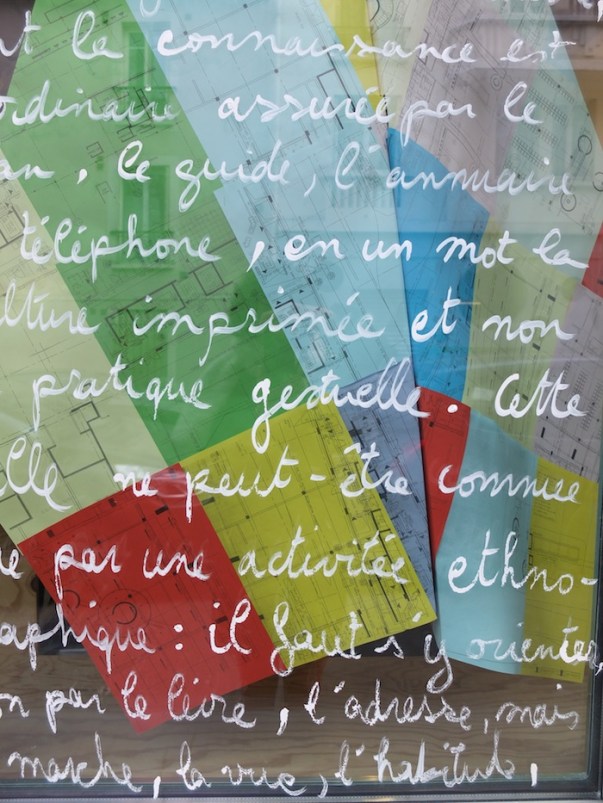 nt la connaissance est
ordinaire assurée par le
an, le guide, l'annuaire
téléphone, en un mot la
lture imprimée et non
pratique gestuelle. Cette
lle ne peut-être connue
e par une activitée ethno-
aphique : il faut s'y orienter,
n par le livre, l'adresse, mais
marche, la vue, l'habitude,